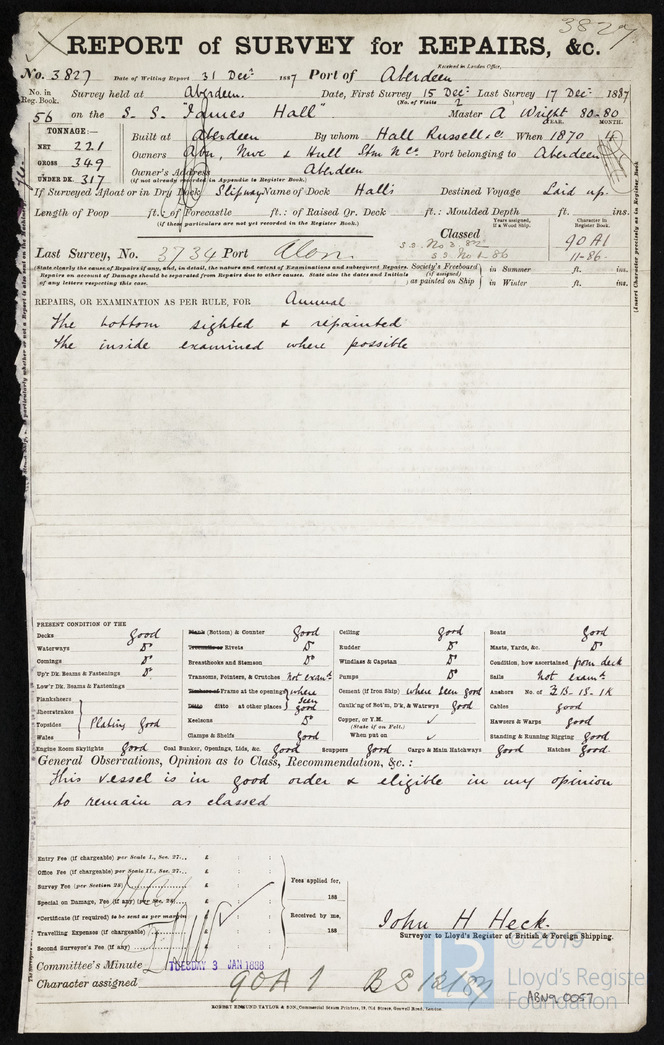 3827
REPORT of SURVEY for REPAIRS, &c.
Received in London Office,
No. 3827 Date of Writing Report 31 Decr 1887 Port of Aberdeen
No. in Reg. Book. Survey held at Aberdeen. Date, First Survey 15 Decr Last Survey 17 Decr 1887
(No. of Visits 2)
56 on the S. S. "James Hall" Master A Wright 80-80
YEAR. MONTH.
TONNAGE:—
NET 221
GROSS 349
UNDER DK. 317
Built at Aberdeen By whom Hall Russell & Co When 1870 4
Owners Abn, Nwc & Hull Stm N Co. Port belonging to Aberdeen
Owner's Address Aberdeen
(if not already recorded in Appendix to Register Book.)
If Surveyed Afloat or in Dry Dock Slipway Name of Dock Hall's Destined Voyage Laid up
Length of Poop ft.: of Forecastle ft.: of Raised Qr. Deck ft.: Moulded Depth ft. ins.
(if these particulars are not yet recorded in the Register Book.)
Classed
Years assigned, if a Wood Ship.
Character in Register Book.
s.s. No 2. 82
s.s. No 1. 86
90 A1
11-86.
Last Survey, No. 3734 Port Abn.
(State clearly the cause of Repairs if any, and, in detail, the nature and extent of Examinations and subsequent Repairs.
Repairs on account of Damage should be separated from Repairs due to other causes. State also the dates and Initials
of any letters respecting this case.)
Society's Freeboard (if assigned) as painted on Ship
in Summer ft. ins.
in Winter ft. ins.
(Insert Character precisely as in Register Book.
REPAIRS, OR EXAMINATION AS PER RULE, FOR Annual
The bottom sighted & repainted
The inside examined where possible
PRESENT CONDITION OF THE
Decks good
Waterways Do
Comings Do
Up'r Dk. Beams & Fastenings Do
Low'r Dk. Beams & Fastenings
Planksheers
Sheerstrakes
Topsides
Wales
Plating good
Plank (Bottom) & Counter good
Treenails or Rivets Do
Breasthooks and Stemson Do
Transoms, Pointers, & Crutches not examd
Timbers or Frame at the openings
Ditto ditto at other places
where seen good
Keelsons Do
Clamps & Shelfs good
Ceiling good
Rudder Do
Windlass & Capstan Do
Pumps Do
Cement (if from Ship) where seen good
Caulk'ng of Bot'm, D'k, & Watrwys good
Copper, or Y.M. ✓
(State if on Felt.)
When put on ✓
Boats good
Masts, Yards, &c. Do
Condition, how ascertained from deck
Sails not examd
Anchors No. of 3B. 1S. 1K
Cables good
Hawsers & Warps good
Standing & Running Rigging good
Engine Room Skylights good Coal Bunker, Openings, Lids, &c. good Scuppers good Cargo & Main Hatchways good Hatches good.
General Observations, Opinion as to Class, Recommendation, &c. :
This vessel is in good order & eligible in my opinion
to remain as classed
Entry Fee (if chargeable) per Scale I., Sec. 27... £ : :
Office Fee (if chargeable) per Scale II., Sec. 27... £ : :
Survey Fee (per Section 28) £ : :
Special on Damage, Fee (if any) (per Sec. 28) £ : :
*Certificate (if required) to be sent as per margin £ : :
Travelling Expenses (if chargeable) £ : :
Second Surveyor's Fee (if any) £ : :
Fees applied for,
188
Received by me,
188
John H Heck.
Surveyor to Lloyd's Register of British & Foreign Shipping.
Committee's Minute TUESDAY 3 JAN 1888
Character assigned 90A1 BS 12/87
ROBERT EDMUND TAYLOR & SON, Commercial Steam Printers, 19, Old Street, Goswell Road, London.
© 2019
Lloyd's Register
Foundation
ABN9 0057